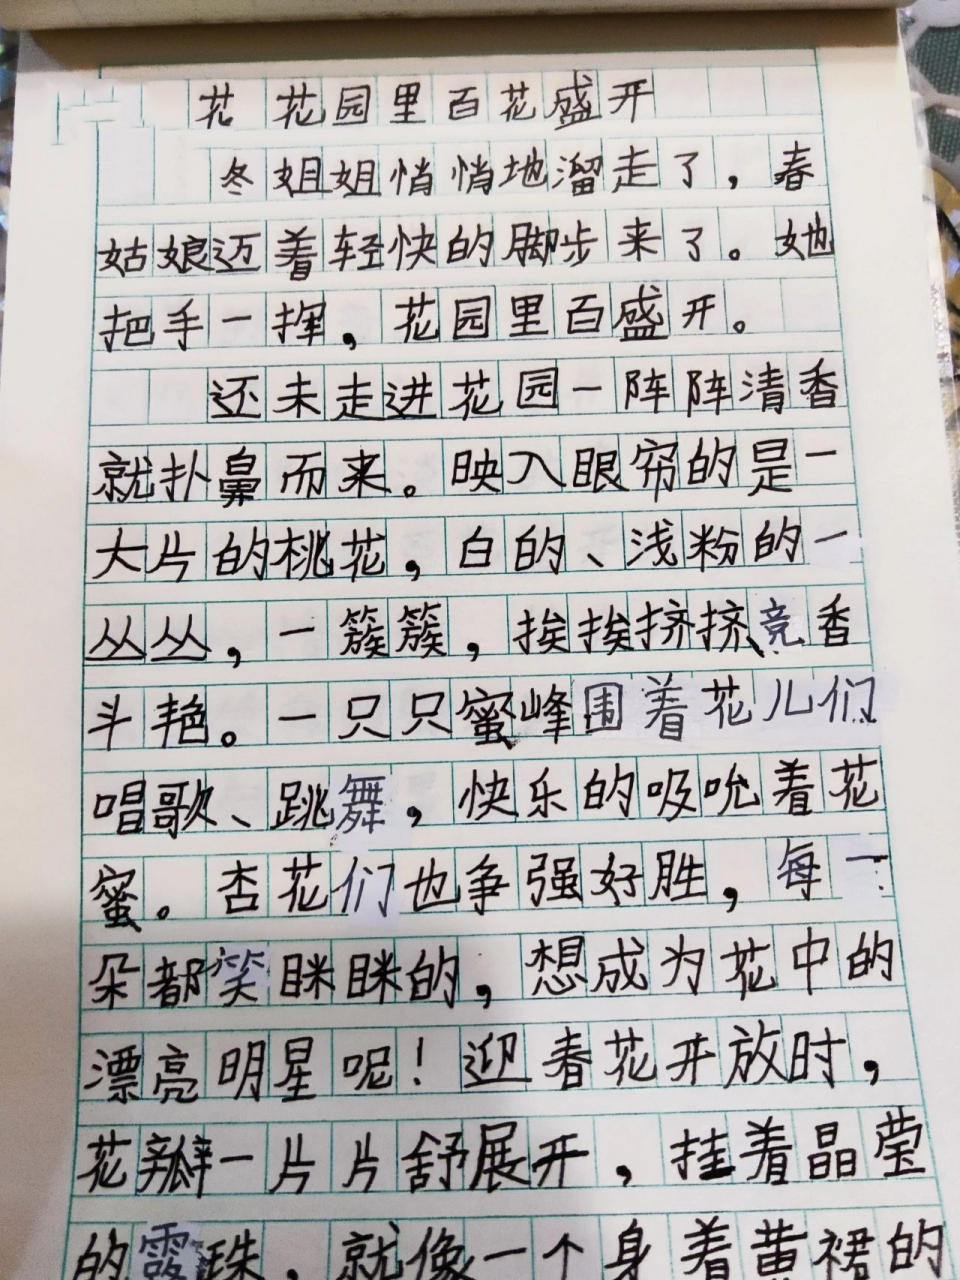 花 花园里百花盛开
冬姐姐悄悄地溜走了，春
姑娘迈着轻快的脚步来了。她
把手一挥，花园里百盛开。
还未走进花园一阵阵清香
就扑鼻而来。映入眼帘的是一
大片的桃花，白的、浅粉的一
丛丛，一簇簇，挨挨挤挤、竞香
斗艳。一只只蜜峰围着花儿们
唱歌、跳舞，快乐的吸吮着花
蜜。杏花们也争强好胜，每一
朵都笑眯眯的，想成为花中的
漂亮明星呢！迎春花开放时，
花瓣一片片舒展开，挂着晶莹
的露珠，就像一个身着黄裙的